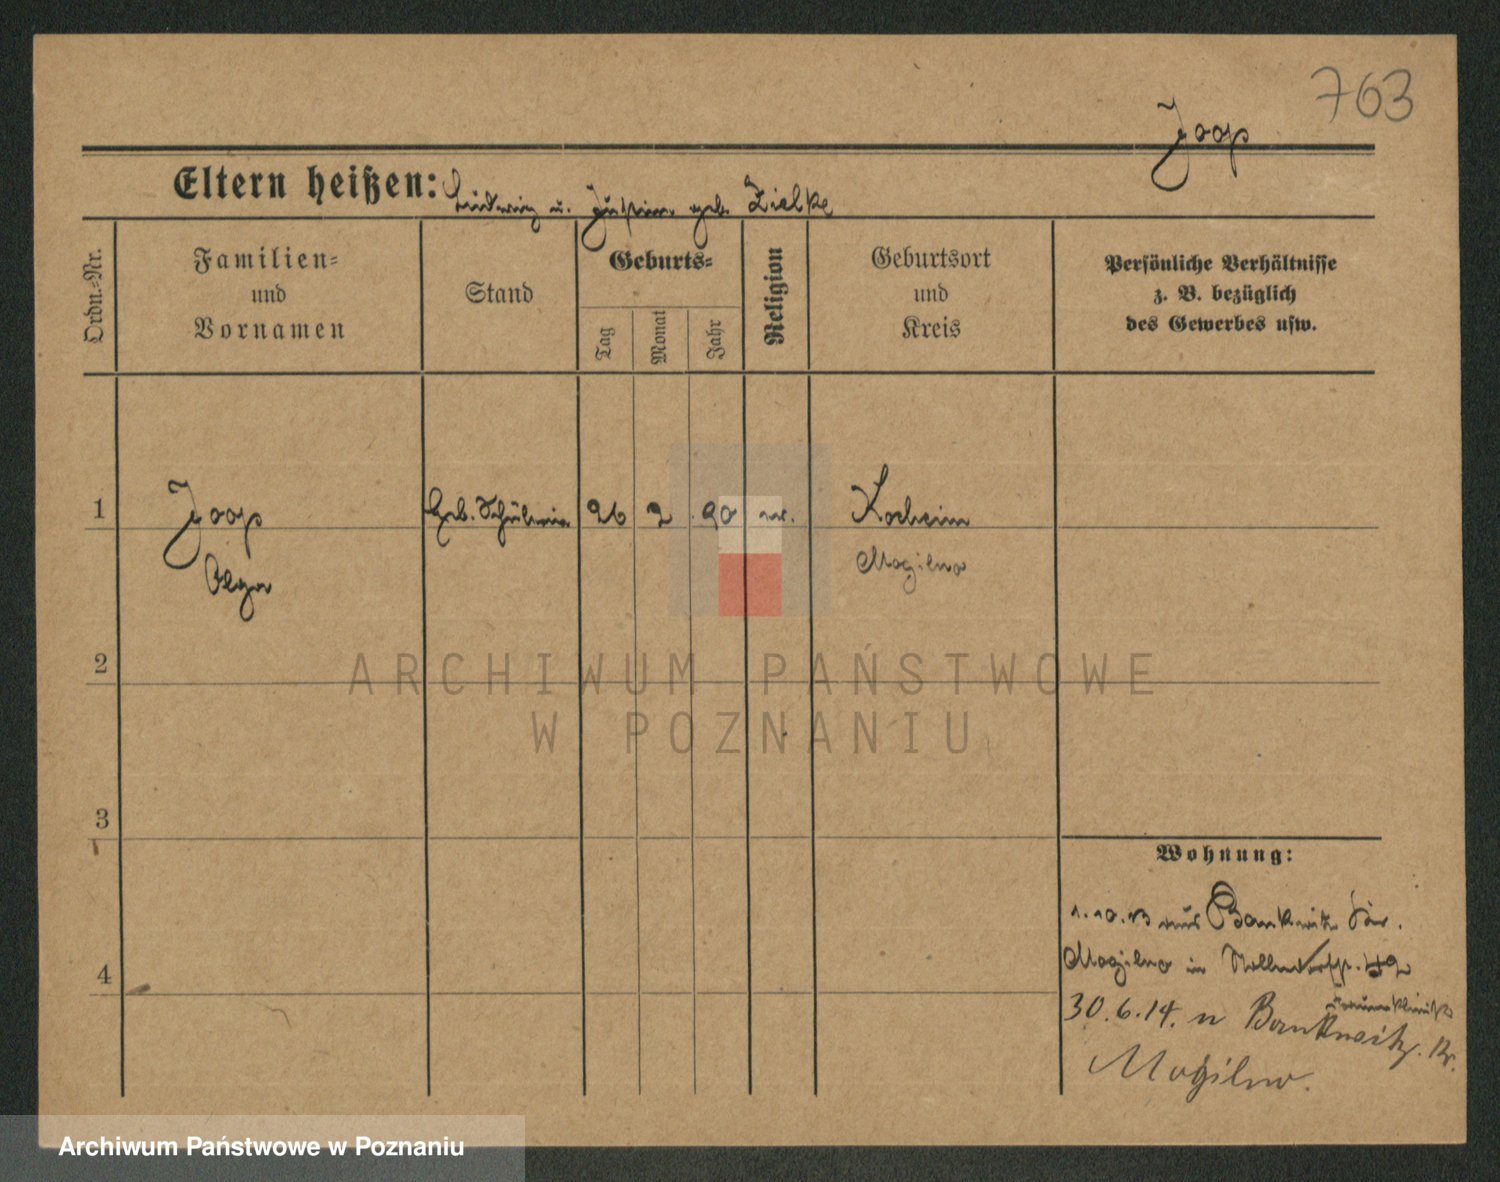 763
Joop
Eltern heißen: Ludwig u. geb. Zielke
Ordn.-Nr.
Familien-
und
Vornamen
Stand
Geburts-
Tag
Monat
Jahr
Religion
Geburtsort
und
Kreis
Persönliche Verhältnisse
z. B. bezüglich
des Gewerbes usw.
1
Joop
Olga
Geb. Schülerin
26
2
90
Mogilno
2
ARCHIWUM PAŃSTWOWE
W POZNANIU
3
Wohnung:
1.10.13 aus
Mogilno in
4
30.6.14. n
Frauenklinik
Mogilno.
Archiwum Państwowe w Poznaniu